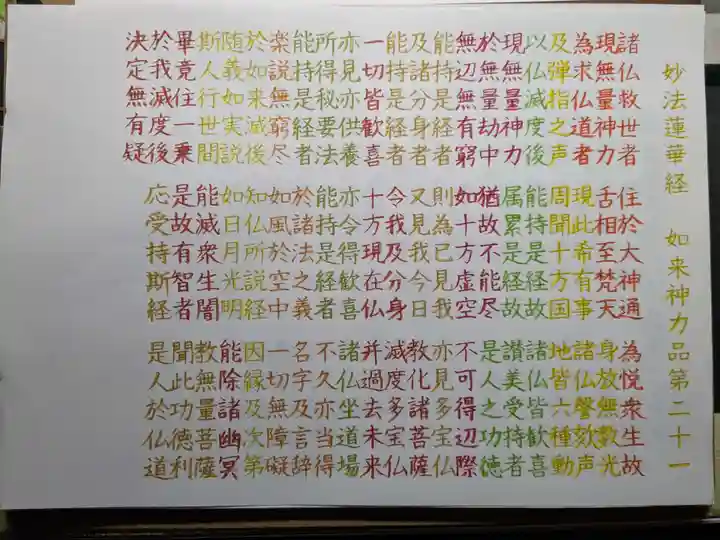 妙法蓮華経　如来神力品第二十一
諸仏救世者　住於大神通　為悦衆生故
現無量神力　舌相至梵天　身放無数光
為求仏道者　現此希有事　諸仏謦欬声
及弾指之声　周聞十方国　地皆六種動
以仏滅度後　能持是経故　諸仏皆歓喜
現無量神力　属累是経故　讃美受持者
於無量劫中　猶故不能尽　是人之功徳
無辺無有窮　如十方虚空　不可得辺際
能持是経者　則為已見我　亦見多宝仏
及諸分身者　又見我今日　教化諸菩薩
能持是経者　令我及分身　滅度多宝仏
一切皆歓喜　十方現在仏　并過去未来
亦見亦供養　亦令得歓喜　諸仏坐道場
所得秘要法　能持是経者　不久亦当得
能持是経者　於諸法之義　名字及言辞
楽説無窮尽　如風於空中　一切無障礙
於如来滅後　知仏所説経　因縁及次第
随義如実説　如日月光明　能除諸幽冥
斯人行世間　能滅衆生闇　教無量菩薩
畢竟住一乗　是故有智者　聞此功徳利
於我滅度後　応受持斯経　是人於仏道
決定無有疑